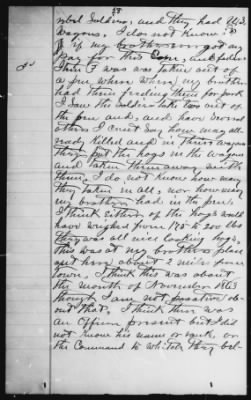 58
ored Soldiers, and they had U.S.
Wagons, I do not know
if my brother ever got any
Pay for this Corn, and fodder
Item 7 was taken out of
a pen where my brother
had them feeding them for pork
I Saw the Soldiers take two out of
the pen and, and have Several
others I cant Say how many all
ready killed and in their wagons
they put the hogs in the wagons
and taken them away with
them, I do not know how many
they taken in all, nor how many
my brother had in the pen,
I think either of the hogs would
have weighed from 175 to 200 lbs
they was all nice looking hogs,
this was at my brothers place
about 2 miles from
town, I think this was about
the month of November 1863
though I am not possitive ab-
out that, I think there was
an Officer present but I did
not know his name or rank, or
the Command to which they bel-